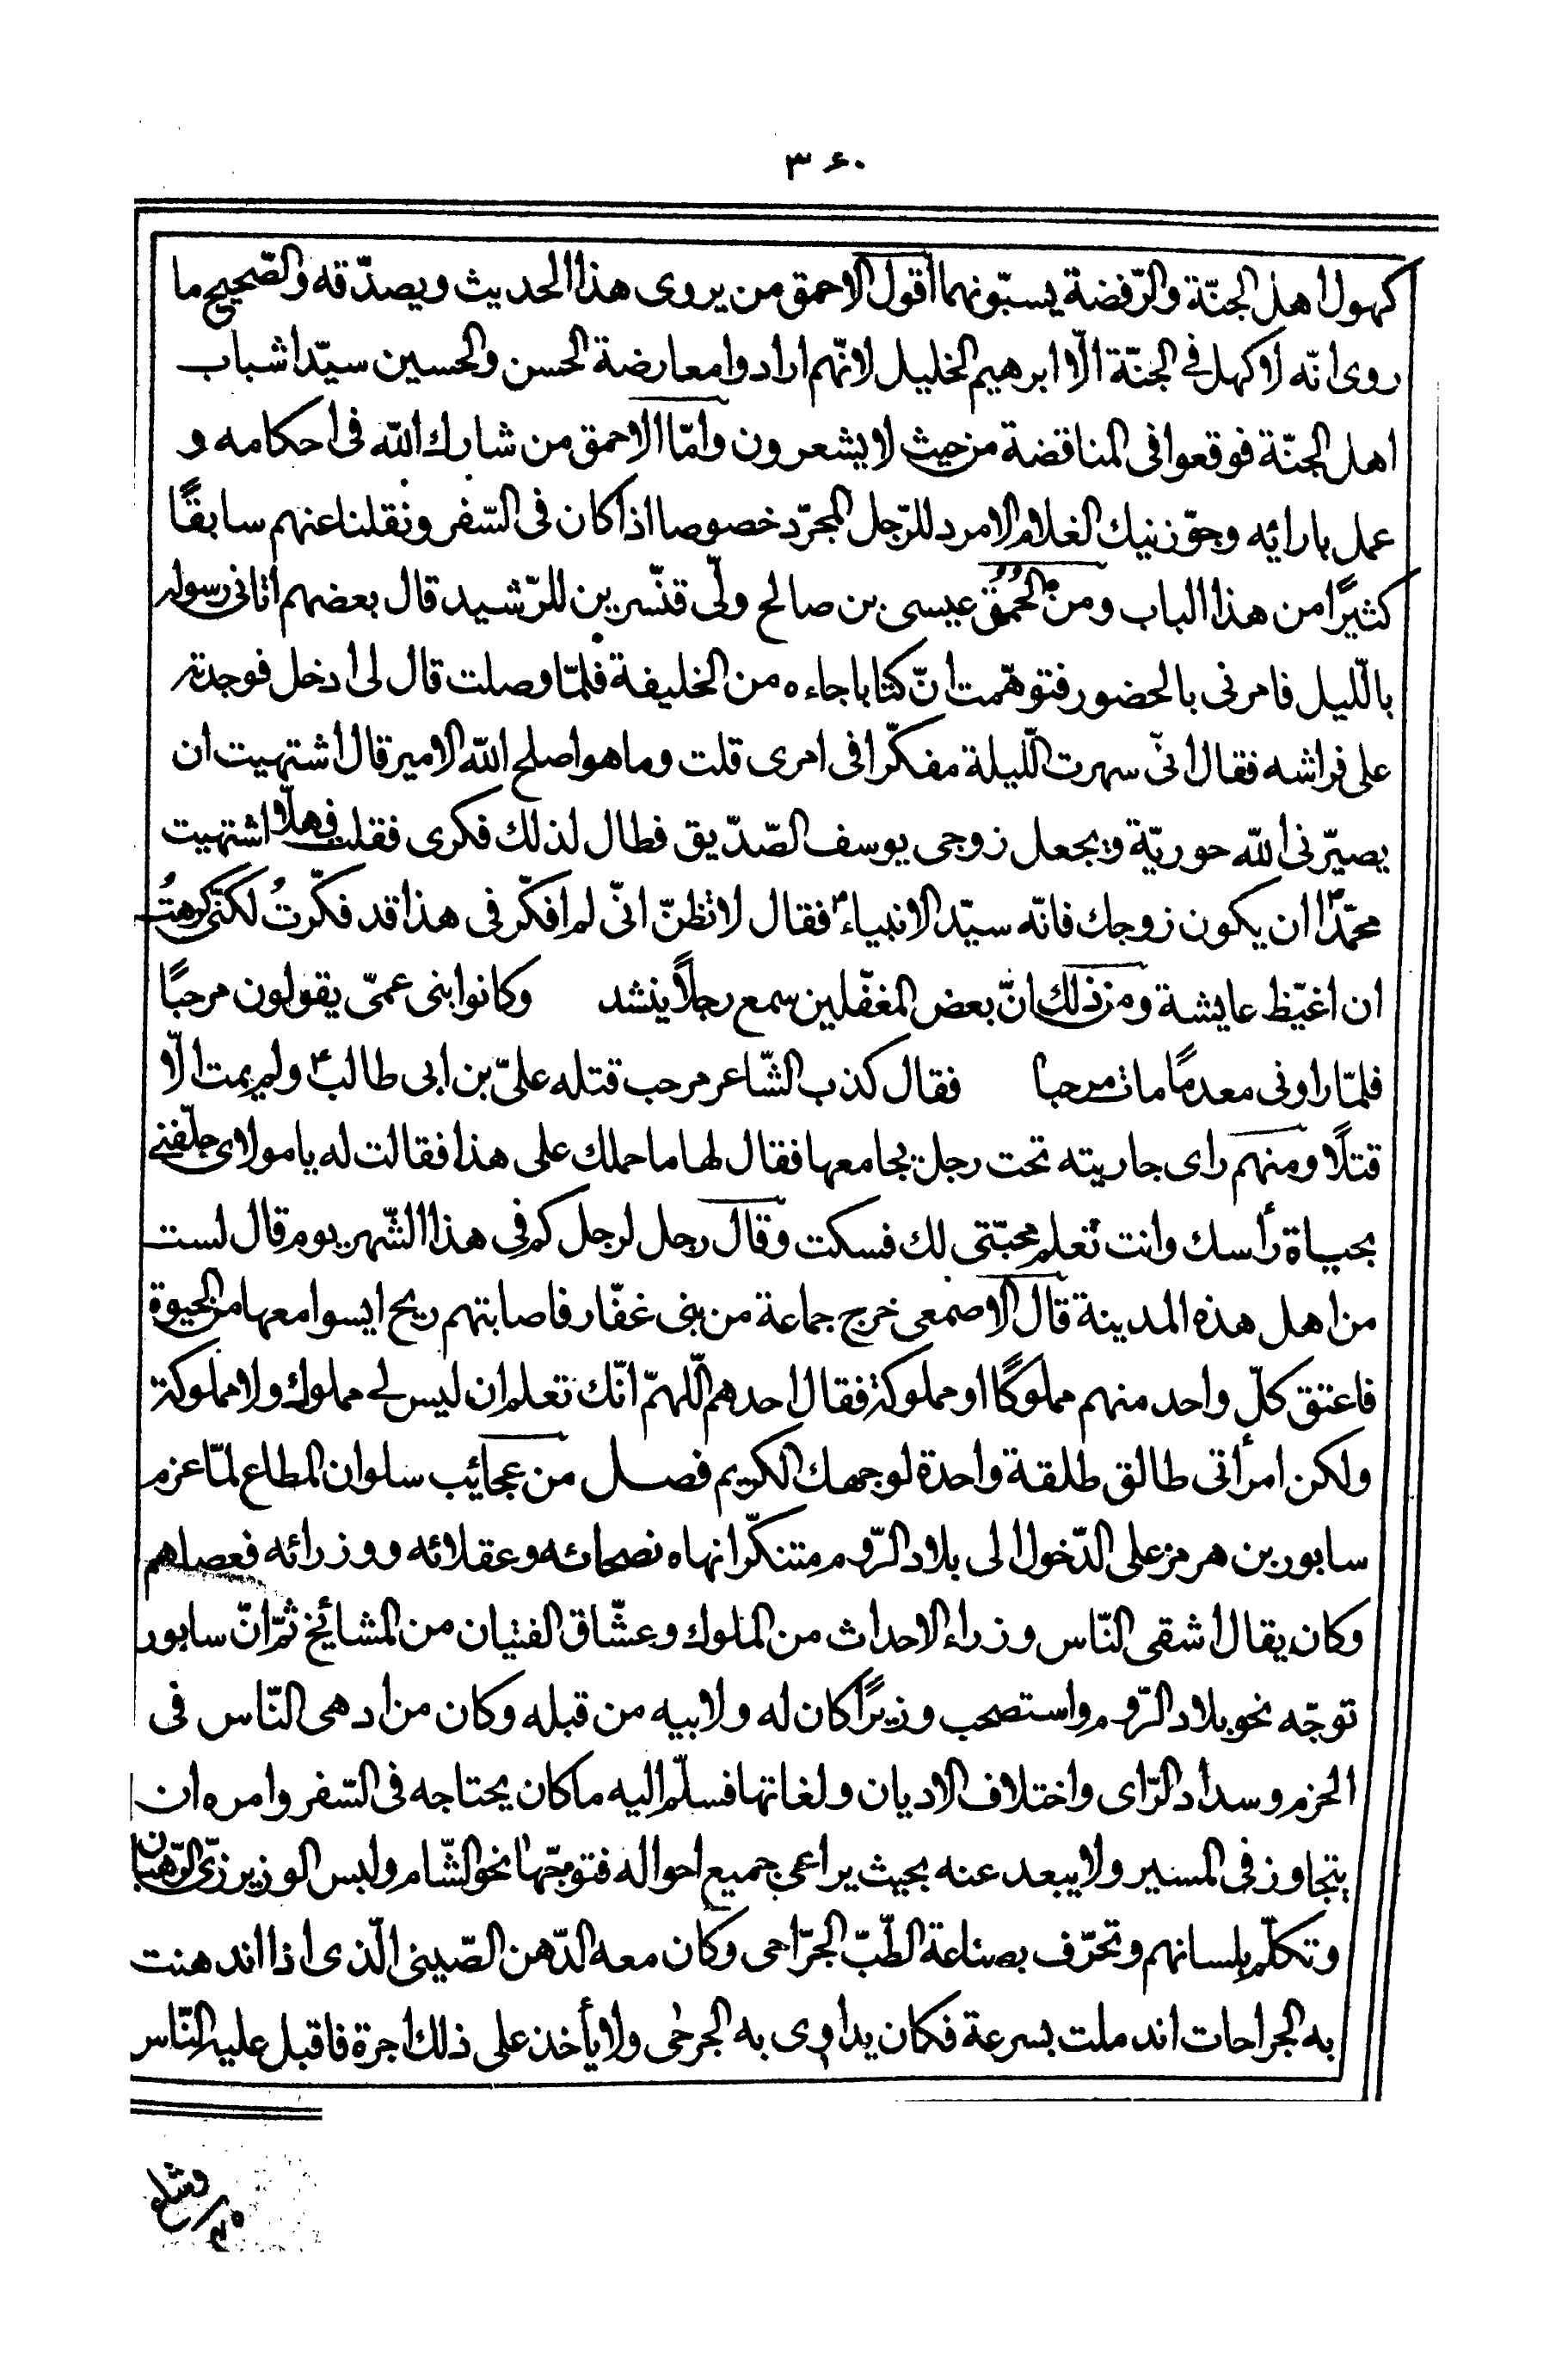 ٣۶٠
كهول اهل الجنّة والرّفضة يسبّونهما اقول الاحمق من يروى هذا الحديث ويصدّقه والصّحيح ما
روى انّه لا كهل فى الجنّة الّا ابرهيم الخليل لانّهم ارادوا معارضة الحسن والحسين سيّدا شباب
اهل الجنّة فوقعوا فى المناقضة من حيث لا يشعرون وامّا الاحمق من شارك الله فى احكامه و
عمل بارائه وجوّز نيك الغلام الامرد للرّجل المجرّد خصوصا اذا كان فى السّفر ونقلنا عنهم سابقًا
كثيرًا من هذا الباب ومن الحُمْقِ عيسى بن صالح ولّى قنّسرين للرّشيد قال بعضهم اتانى رسوله
باللّيل فامرنى بالحضور فتوهّمت انّ كتابا جاءه من الخليفة فلمّا وصلت قال لى ادخل فوجدته
على فراشه فقال انّى سهرت اللّيلة مفكّرا فى امرى قلت وما هو اصلح الله الامير قال اشتهيت ان
يصيّرنى الله حوريّة ويجعل زوجى يوسف الصّدّيق فطال لذلك فكرى فقلت فهلّا اشتهيت
محمّدًا ان يكون زوجك فانّه سيّد الانبياء فقال لا تظنّ انّى لم افكّر فى هذا قد فكّرتُ لكنّى كرهتُ
ان اغيّظ عايشة ومن ذلك انّ بعض المغفّلين سمع رجلًا ينشد وكانوا بنى عمّى يقولون مرحبًا
فلمّا راونى معدمًا مات مرحبا فقال كذب الشّاعر مرحب قتله علىّ بن ابى طالب ولم يمت الّا
قتلًا ومنهم راى جاريته تحت رجل يجامعها فقال لها ما حملك على هذا فقالت له يا مولاى حلّفنى
بحياة رأسك وانت تعلم محبّتى لك فسكت وقال رجل لرجل كم فى هذا الشّهر يوم قال لست
من اهل هذه المدينة قال الاصمعى خرج جماعة من بنى غفّار فاصابتهم ريح ايسوا معها من الحيوة
فاعتق كلّ واحد منهم مملوكًا او مملوكة فقال احدهم اللّهمّ انّك تعلم ان ليس لى مملوك ولا مملوكة
ولكن امرأتى طالق طلقة واحدة لوجهك الكريم فصل من عجائيب سلوان المطاع لمّا عزم
سابور بن هرمز على الدّخول الى بلاد الرّوم متنكّرا نهاه نصحائه وعقلائه ووزرائه فعصاهم
وكان يقال اشقى النّاس وزراء الاحداث من الملوك وعشّاق الفتيان من المشائيخ ثمّ انّ سابور
توجّه نحو بلاد الرّوم واستصحب وزيرًا كان له ولابيه من قبله وكان من ادهى النّاس فى
الحزم وسداد الرّاى واختلاف الاديان ولغاتها فسلّم اليه ما كان يحتاجه فى السّفر وامره ان
يتجاوز فى المسير ولا يبعد عنه بحيث يراعى جميع احواله فتوجّها نحو الشّام ولبس الوزير زىّ الرّهبان
وتكلّم بلسانهم وتحرّف بصناعة الطّبّ الجرّاحى وكان معه الدّهن الصّينى الّذى اذا اندهنت
به الجراحات اندملت بسرعة فكان يداوى به الجرحى ولا يأخذ على ذلك اجرة فاقبل عليه النّاس